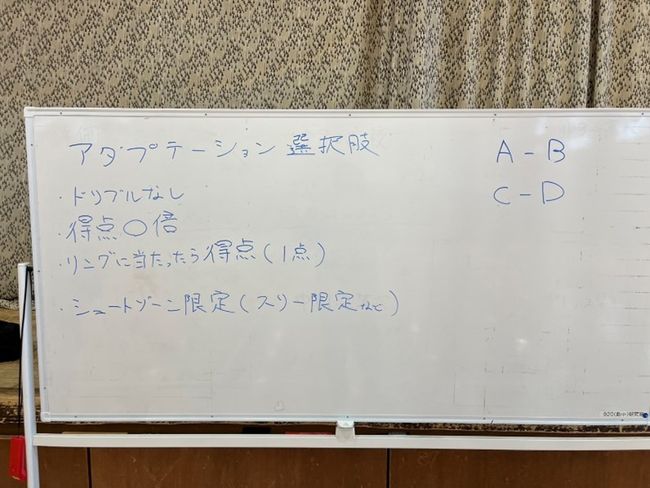 アダプテーション 選択肢
・ドリブルなし
・得点〇倍
・リングに当たったら得点(1点)
・シュートゾーン限定(スリー限定など)
A－B
C－D